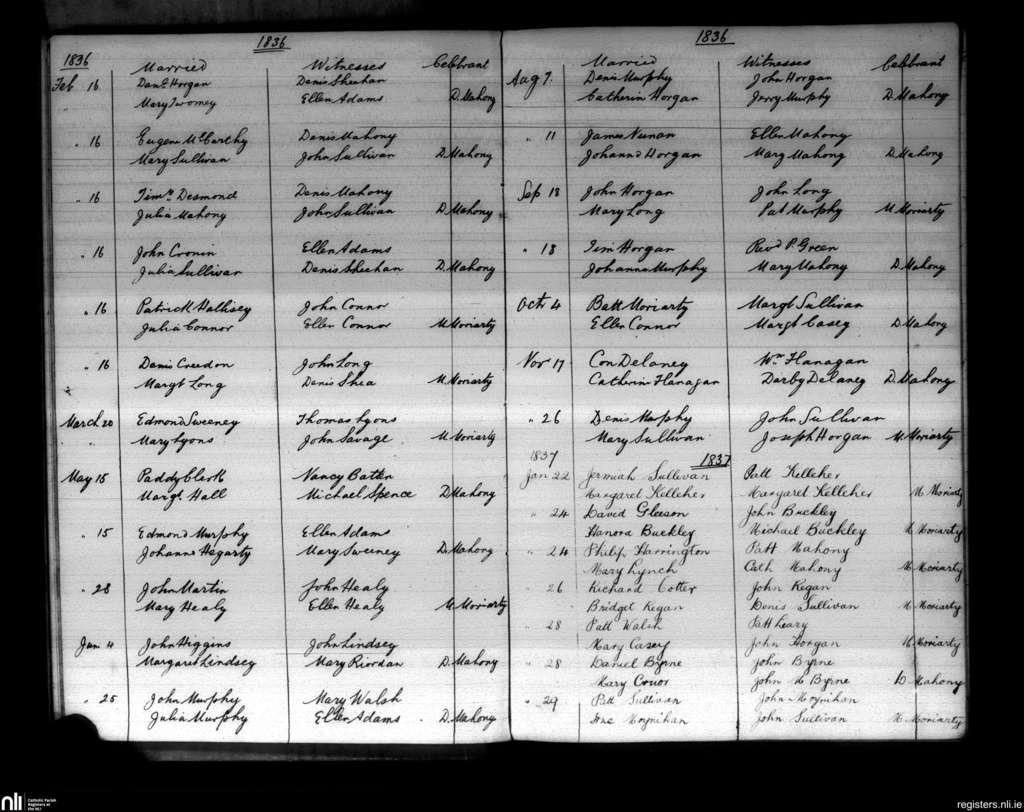 1836
1836
Married Witnesses Celebrant
Feb 16 Danl Horgan Denis Sheehan
Mary Twomey Ellen Adams D. Mahony
" 16 Eugene McCarthy Denis Mahony
Mary Sullivan John Sullivan D. Mahony
" 16 Timy Desmond Denis Mahony
Julia Mahony John Sullivan D. Mahony
" 16 John Cronin Ellen Adams
Julia Sullivan Denis Sheehan D. Mahony
" 16 Patrick Hallisey John Connor
Julia Connor Ellen Connor M. Moriarty
" 16 Denis Creedon John Long
Margt Long Denis Shea M. Moriarty
March 20 Edmond Sweeney Thomas Lyons
" Mary Lyons John Savage M. Moriarty
May 15 Paddy Clark Nancy Batten
Margt Hall Michael Spence D. Mahony
" 15 Edmond Murphy Ellen Adams
Johanna Hegarty Mary Sweeney D. Mahony
" 28 John Martin John Healy
Mary Healy Ellen Healy M. Moriarty
Jun 4 John Higgins John Lindsey
Margaret Lindsey Mary Riordan D. Mahony
" 25 John Murphy Mary Walsh
Julia Murphy Ellen Adams D. Mahony
1836
Married Witnesses Celebrant
Aug 7. Denis Murphy John Horgan
Catherin Horgan Jerry Murphy D. Mahony
" 11 James Nunan Ellen Mahony
Johanna Horgan Mary Mahony D. Mahony
Sep 18 John Horgan John Long
Mary Long Pat Murphy M. Moriarty
" 18 Tim Horgan Revd P. Green
Johanna Murphy Mary Mahony D. Mahony
Octr 4 Batt Moriarty Margt Sullivan
Ellen Connor Margt Casey D. Mahony
Nov 17 Con Delaney Wm Flanagan
Catherin Flanagan Darby Delaney D. Mahony
" 26 Denis Murphy John Sullivan
Mary Sullivan Joseph Horgan M. Moriarty
1837 1837
Jan 22 Jermiah Sullivan Patt Kelleher
Margaret Kelleher Margaret Kelleher M. Moriarty
" 24 David Gleeson John Buckley
Hanora Buckley Michael Buckley M. Moriarty
" 24 Philip Harrington Patt Mahony
Mary Lynch Cath Mahony M. Moriarty
" 26 Richard Cotter John Regan
Bridget Regan Denis Sullivan M. Moriarty
" 28 Patt Walsh Patt Leary
Mary Casey John Horgan M. Moriarty
" 28 Daniel Byrne John Byrne
Mary Conor John Byrne D. Mahony
" 29 Patt Sullivan John Moynihan
Moynihan John Sullivan M. Moriarty
nli Catholic Parish Registers at the NLI
registers.nli.ie